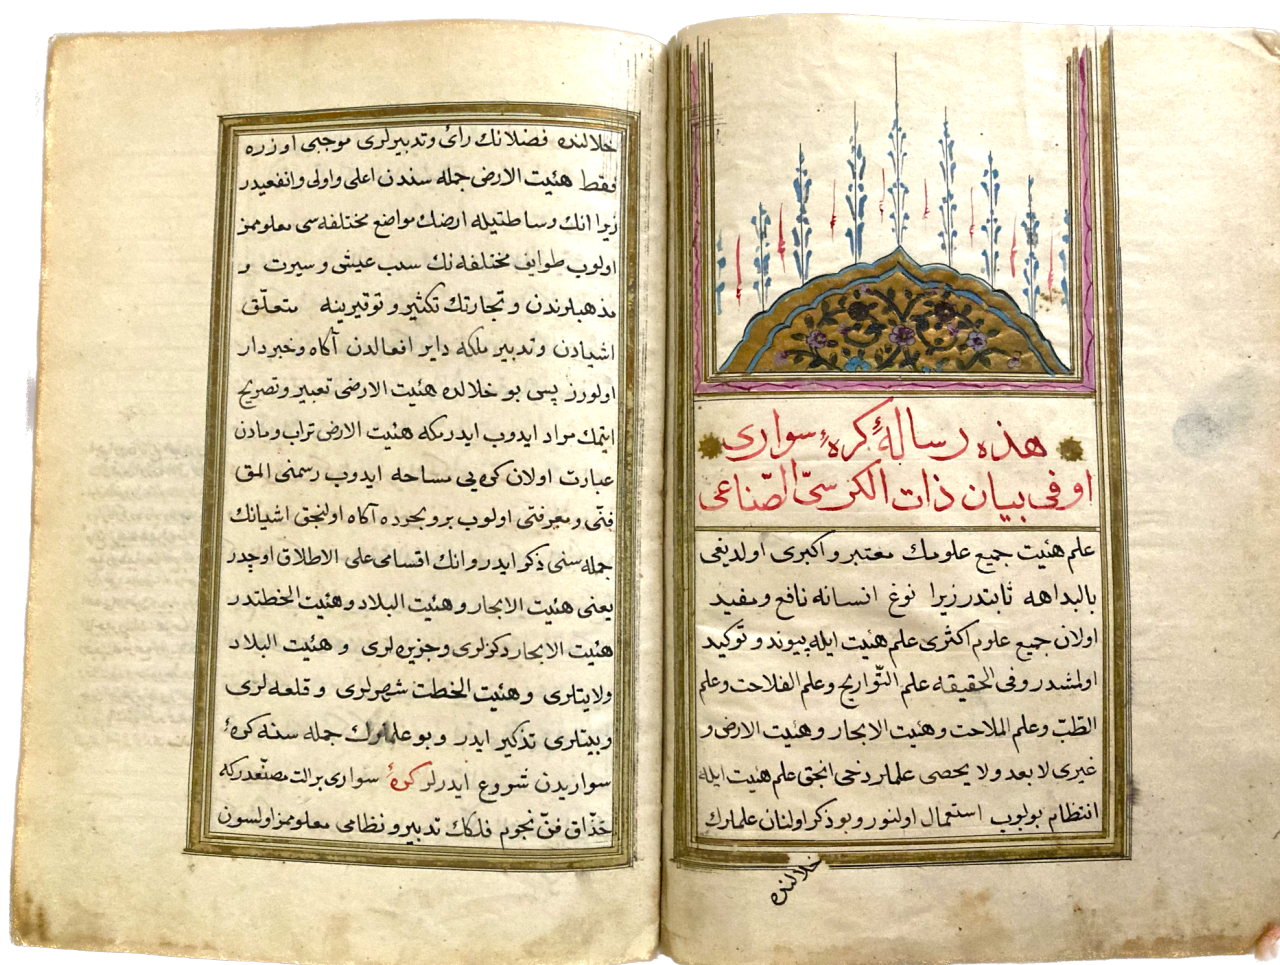 هذه رسالهٔ كرهٔ سوارى
او فى بيان ذات الكرسىّ الصّناعى
علم هئيت جميع علومك معتبر و اكبرى اولديغى
بالبداهه ثابتدر زيرا نوع انسانه نافع و مفيد
اولان جميع علوم اكثرى علم هئيت ايله پيوند و توكيد
اولمشدر و فى الحقيقه علم التّواريخ و علم الفلاحت و علم
الطبّ و علم الملاحت و هئيت الابحار و هئيت الارض و
غيرى لا بعد و لا يحصى علملر دخى انجق علم هئيت ايله
انتظام بولوب استعمال اولنور و بو ذكر اولنان علملرك
خلالنده
خلالنده فضلانك رائ و تدبيرلرى موجبى اوزره
فقط هئيت الارض جمله سندن اعلى و اولى و انفعيدر
زيرا انك وساطتيله ارضك مواضع مختلفه سى معلوممز
اولوب طوايف مختلفه نك سبب عيش و سيرت و
مذهبلرندن و تجارتك تكثير و توتيرينه متعلّق
اشيادن و تدبير ملكه داير افعالدن آكاه و خبردار
اولورز پس بو خلالده هئيت الارضى تعبير و تصريح
ايتمك مراد ايدوب ايدرمكه هئيت الارض تراب و مادن
عبارت اولان كره يى مساحه ايدوب رسمنى المق
فنّى و معرفتى اولوب بر و بحرده آكاه اولنجق اشيانك
جمله سنى ذكر ايدر و انك اقسامى على الاطلاق اوچدر
يعنى هئيت الابحار و هئيت البلاد و هئيت الخطتدر
هئيت الابحار دكزلرى و جزيره لرى و هئيت البلاد
ولايتلرى و هئيت الخطت شهرلرى و قلعه لرى
و بيتلرى تذكير ايدر و بو علملرك جمله سنه كرهٔ
سواريدن شروع ايدرلر كرهٔ سوارى بر التمصنّعدركه
حذّاق فنّ نجوم فلكك تدبير و نظامى معلوممز اولسون